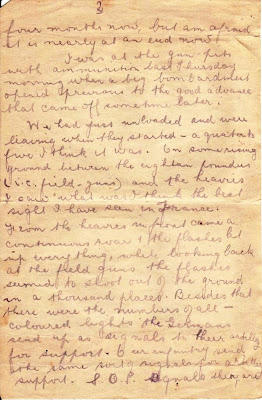 2
four months now, but am afraid
it is nearly at an end now.
I was at the gun-pits
with ammunition last Thursday
morning when a big bombardment
opened previous to the good advance
that came off sometime later.
We had just unloaded and were
leaving when they started - a quarter to
five I think it was. On some rising
ground between the eighteen pounders
(i.e. field-guns) and the heavies
I saw what was I think the best
sight I have seen in France.
From the heavies in front came a
continuous roar & the flashes lit
up everything, while looking back
at the field guns the flashes
seemed to shoot out of the ground
in a thousand places. Besides that
there were the numbers of all-
coloured lights the Germans
send up as signals to their artillery
for support. Our infantry send
the same sort of signals for
support. S.O.S. signals they are